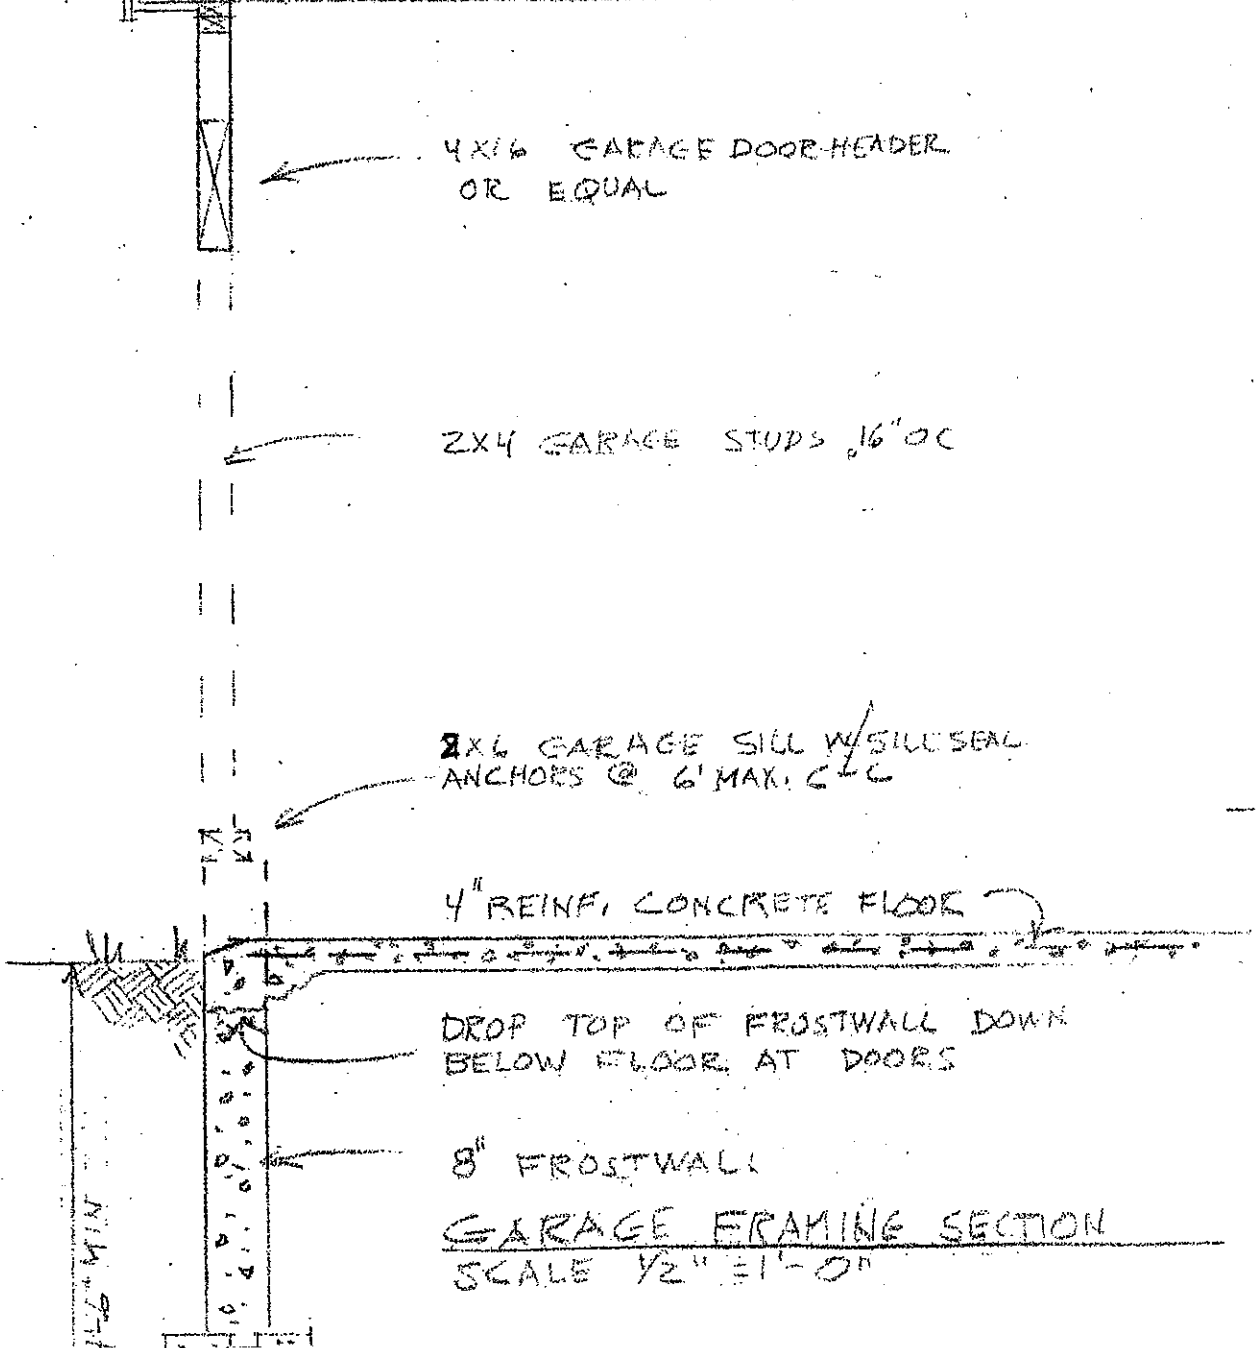 4X16 GARAGE DOOR HEADER
OR EQUAL
2X4 GARAGE STUDS, 16" OC
2X6 GARAGE SILL W/SILLSEAL
ANCHORS @ 6' MAX. C-C
4" REINF. CONCRETE FLOOR
DROP TOP OF FROSTWALL DOWN
BELOW FLOOR AT DOORS
8" FROSTWALL
GARAGE FRAMING SECTION
SCALE 1/2" = 1'-0"
MIN